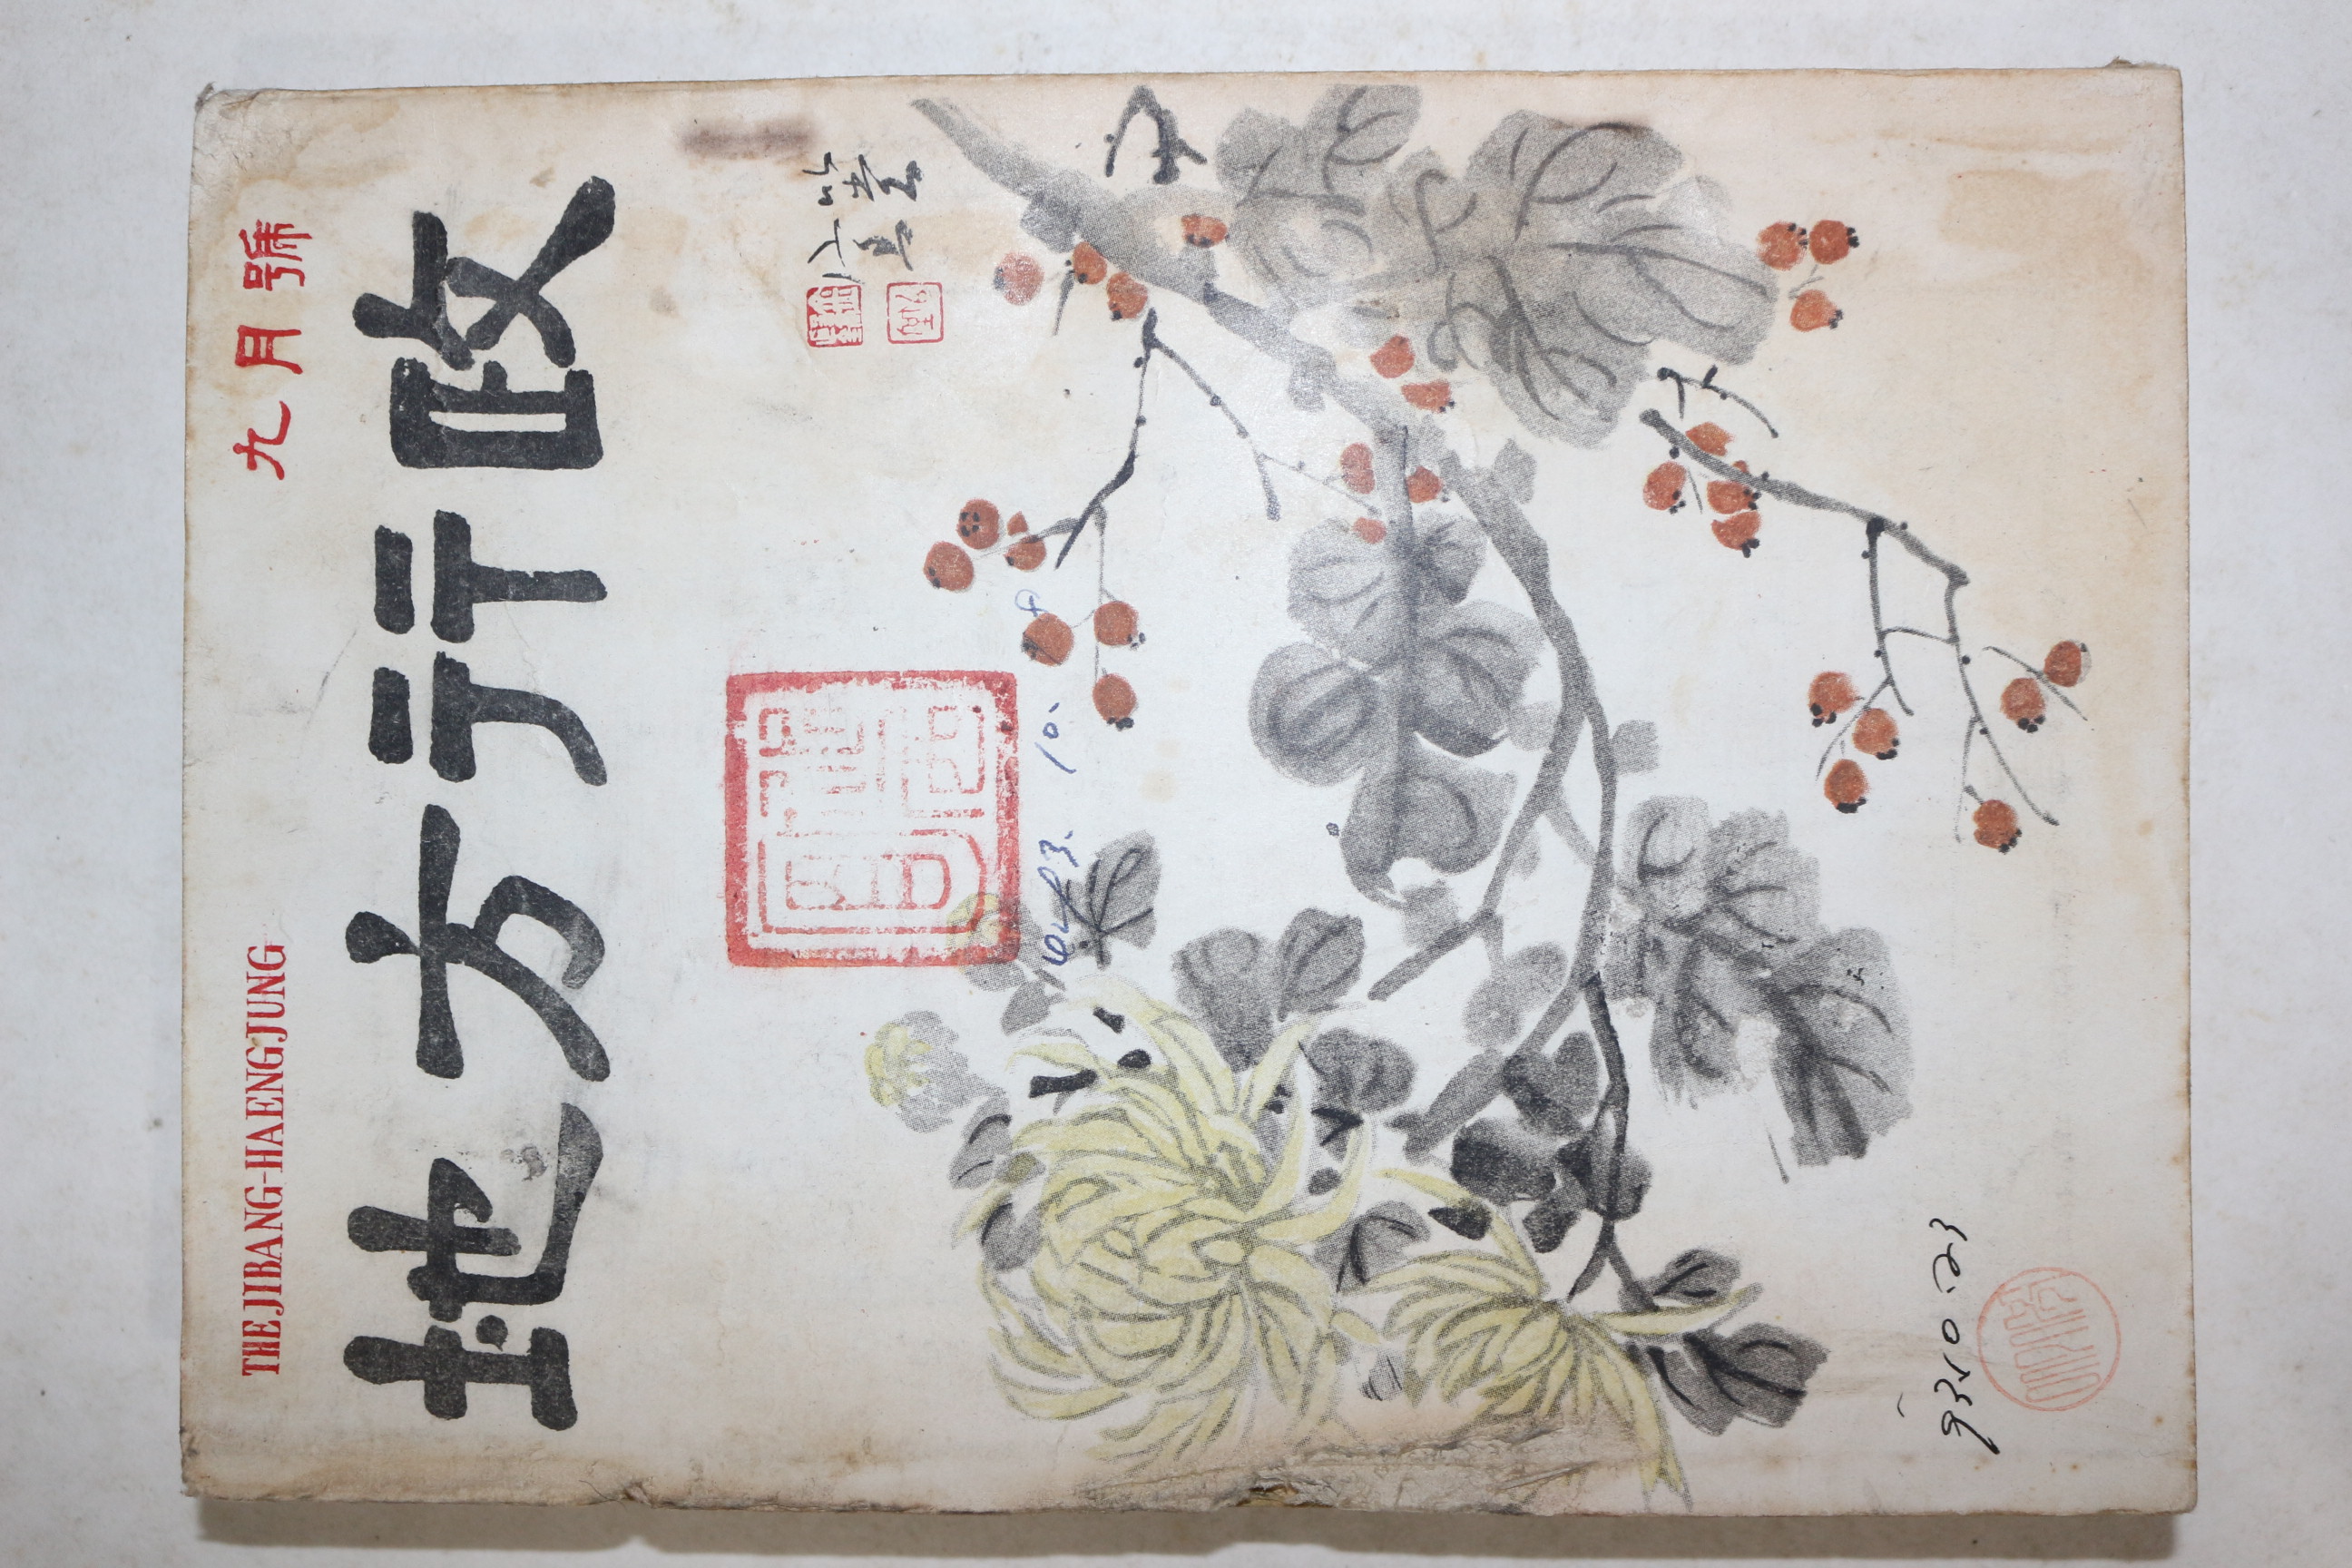 THE JIBANG-HAENGJUNG
九月號
地方行政
4293. 10.
93.10.23